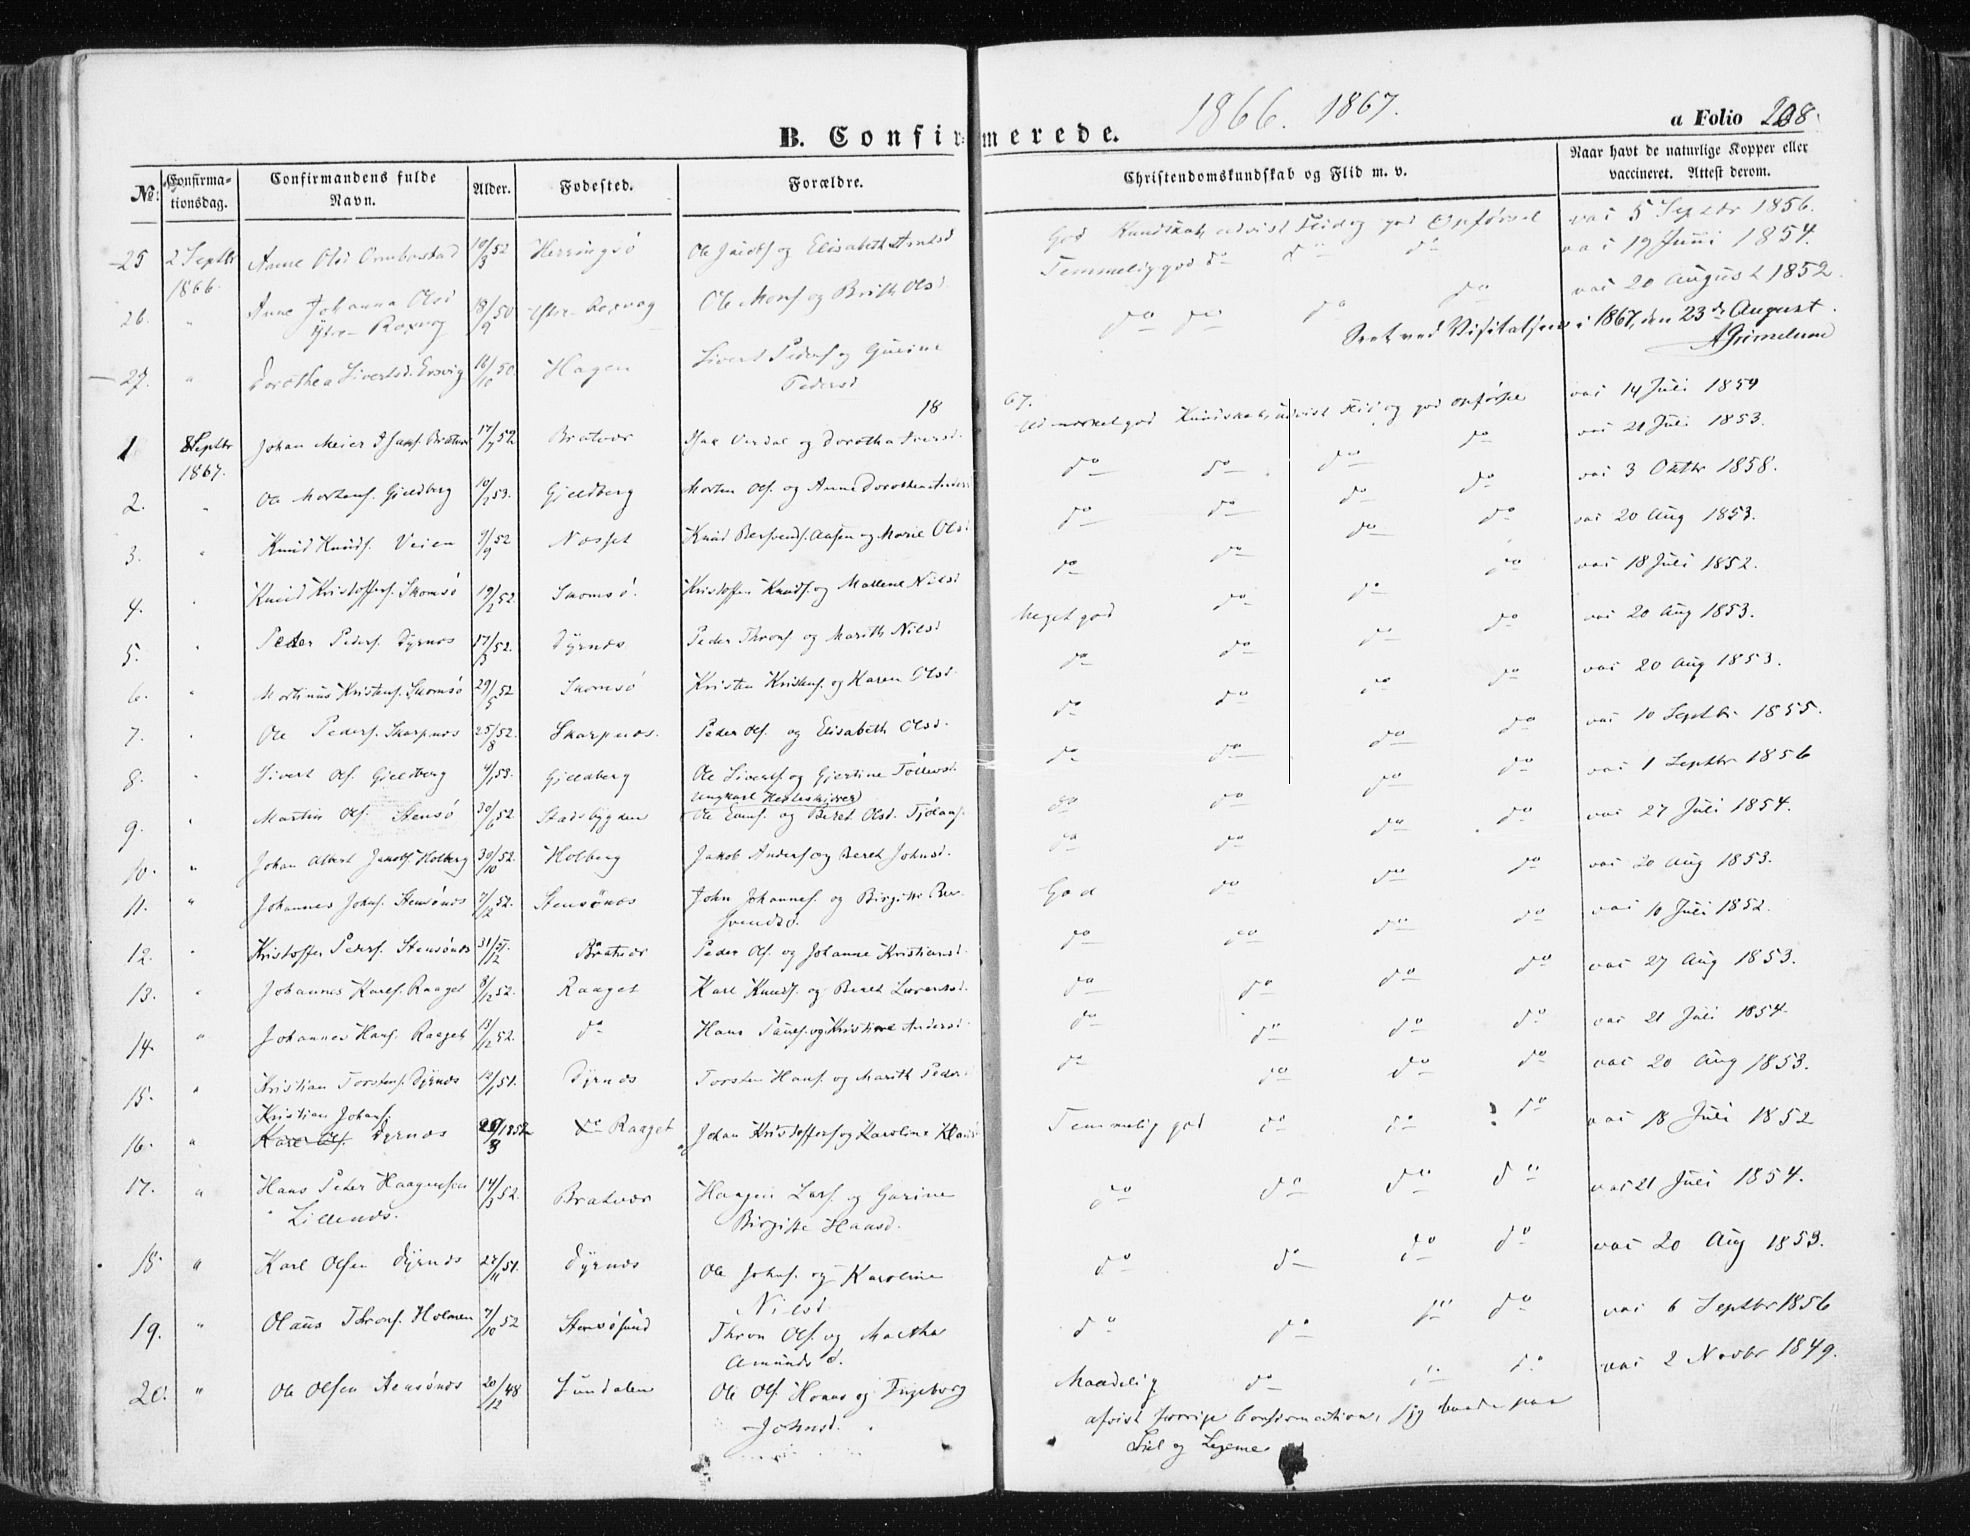 1866. 1867.
a Folio 208.
B. Confirmerede.
No: Confirmationsdag. Confirmandens fulde Navn. Alder. Fødested. Forældre. Christendomskundskab og Flid m. v. Naar havt de naturlige Kopper eller vaccineret. Attest derom.
25 2 Septbr 1866. Anne Olsd Ormbostad 10/3 52 Herringsö Ole Jacobs. og Elisabeth Arntsd God Kundskab, udvist Flid og god Opførsel vac 5 Septbr 1856.
26. " Anne Johanna Olsd Ytre-Roxvog 18/9 50 Ytre-Roxvog Ole Mons. og Brith Olsd. Temmelig god do do do vac 19 Juni 1854.
27. " Dorothea Sivertsd. Ervvig 16/10 50. Hagen Sivert Peders. og Gurine Pedersd do do do do vac 20 August 1852.
Seet ved Visitatsen i 1867, den 23de August. AGrimelund
1867.
1 8 Septbr 1867. Johan Meier Isaks. Bratvær 17/7 52. Bratvær Isak Verdal og Dorothea Iversd. Udmærket god Kundskab, udvist Flid og god Opførsel vac 14 Juli 1854
2. " Ole Mortens. Gjeldberg 10/1 53. Gjeldberg Morten Ols. og Anne Dorothea Anders. do do do do vac 21 Juli 1853.
3. " Knud Knuds. Veien 7/9 52 Næsset Knud Bersvends. Aasen og Marie Olsd do do do do vac 3 Oktbr 1858.
4. " Knud Kristoffers. Skomsö 19/2 52. Skomsö. Kristoffer Knuds. og Mallene Nilsd do do do do vac 20 Aug 1853.
5. " Peder Peders. Dyrnæs 17/3 52. Dyrnæs Peder Throns. og Marith Nilsd Meget god do do do vac 18 Juli 1852.
6. " Martinus Kristens. Skomsö 29/5 52 Skomsö Kristen Kristens. og Karen Olsd. do do do do vac 20 Aug 1853.
7. " Ole Peders. Skarpnæs 25/8 52. Skarpnæs. Peder Ols. og Elisabeth Olsd. do do do do vac 20 Aug 1853.
8. " Sivert Ols. Gjeldberg 4/1 53. Gjeldberg Ole Siverts. og Gjertine Tollevsd. do do do do vac 10 Septbr 1855.
9. " Martin Ols. Stensö 30/6 52. Stadsbygden Ungkarl Ole Ems. og Beret Olsd. do do do do vac 1 Septbr 1856
10. " Johan Albert Jakobs. Holberg 30/10 52. Holberg Jakob Anders. og Beret Johnsd. do do do do vac 27 Juli 1854.
11. " Johannes Johns. Stensönæs 7/2 52. Stensönæs John Johannes. og Birgitte Bersvendsd. God do do do vac 20 Aug 1853.
12. " Kristoffer Peders. Stensönæs 31/12 51. Bratvær Peder Ols. og Johanne Kristiansd. do do do do vac 10 Juli 1852.
13. " Johannes Karls. Raaget 8/12 52. Raaget Karl Knuds. og Beret Lavertsd. do do do do vac 27 Aug 1853.
14. " Johannes Hans. Raaget 13/12 52. do Hans Pauls. og Kristine Andersd. do do do do vac 21 Juli 1854.
15. " Kristian Torstens. Dyrnæs 12/1 51. Dyrnæs Torsten Hans. og Marith Peders. do do do do vac 20 Aug 1853.
16. " Kristian Johans. Karl Ols. Dyrnæs 29/3 1852 do Raaget Johan Kristoffers. og Karoline Klausd Temmelig god do do do vac 18 Juli 1852
17. " Hans Peter Haagensen Lillenæs. 14/3 52. Bratvær Haagen Lars. og Gurine Birgitte Hansd. do do do do vac 21 Juli 1854.
18. " Karl Olsen Dyrnæs 27/11 51. Dyrnæs Ole Johns. og Karoline Nilsd. do do do do vac 20 Aug 1853.
19. " Olaus Throns. Holmen 7/10 52 Stensösund Thron Ols. og Marthe Amundsd. do do do do vac 6 Septbr 1856
20. " Ole Olsen Stensönæs 20/12 48 Sundalen Ole Ols. og Ingeborg Johnsd. Maadelig do do vac 2 Novbr 1849.
afvist forrige Confirmation, syg baade paa
Siel og Legeme